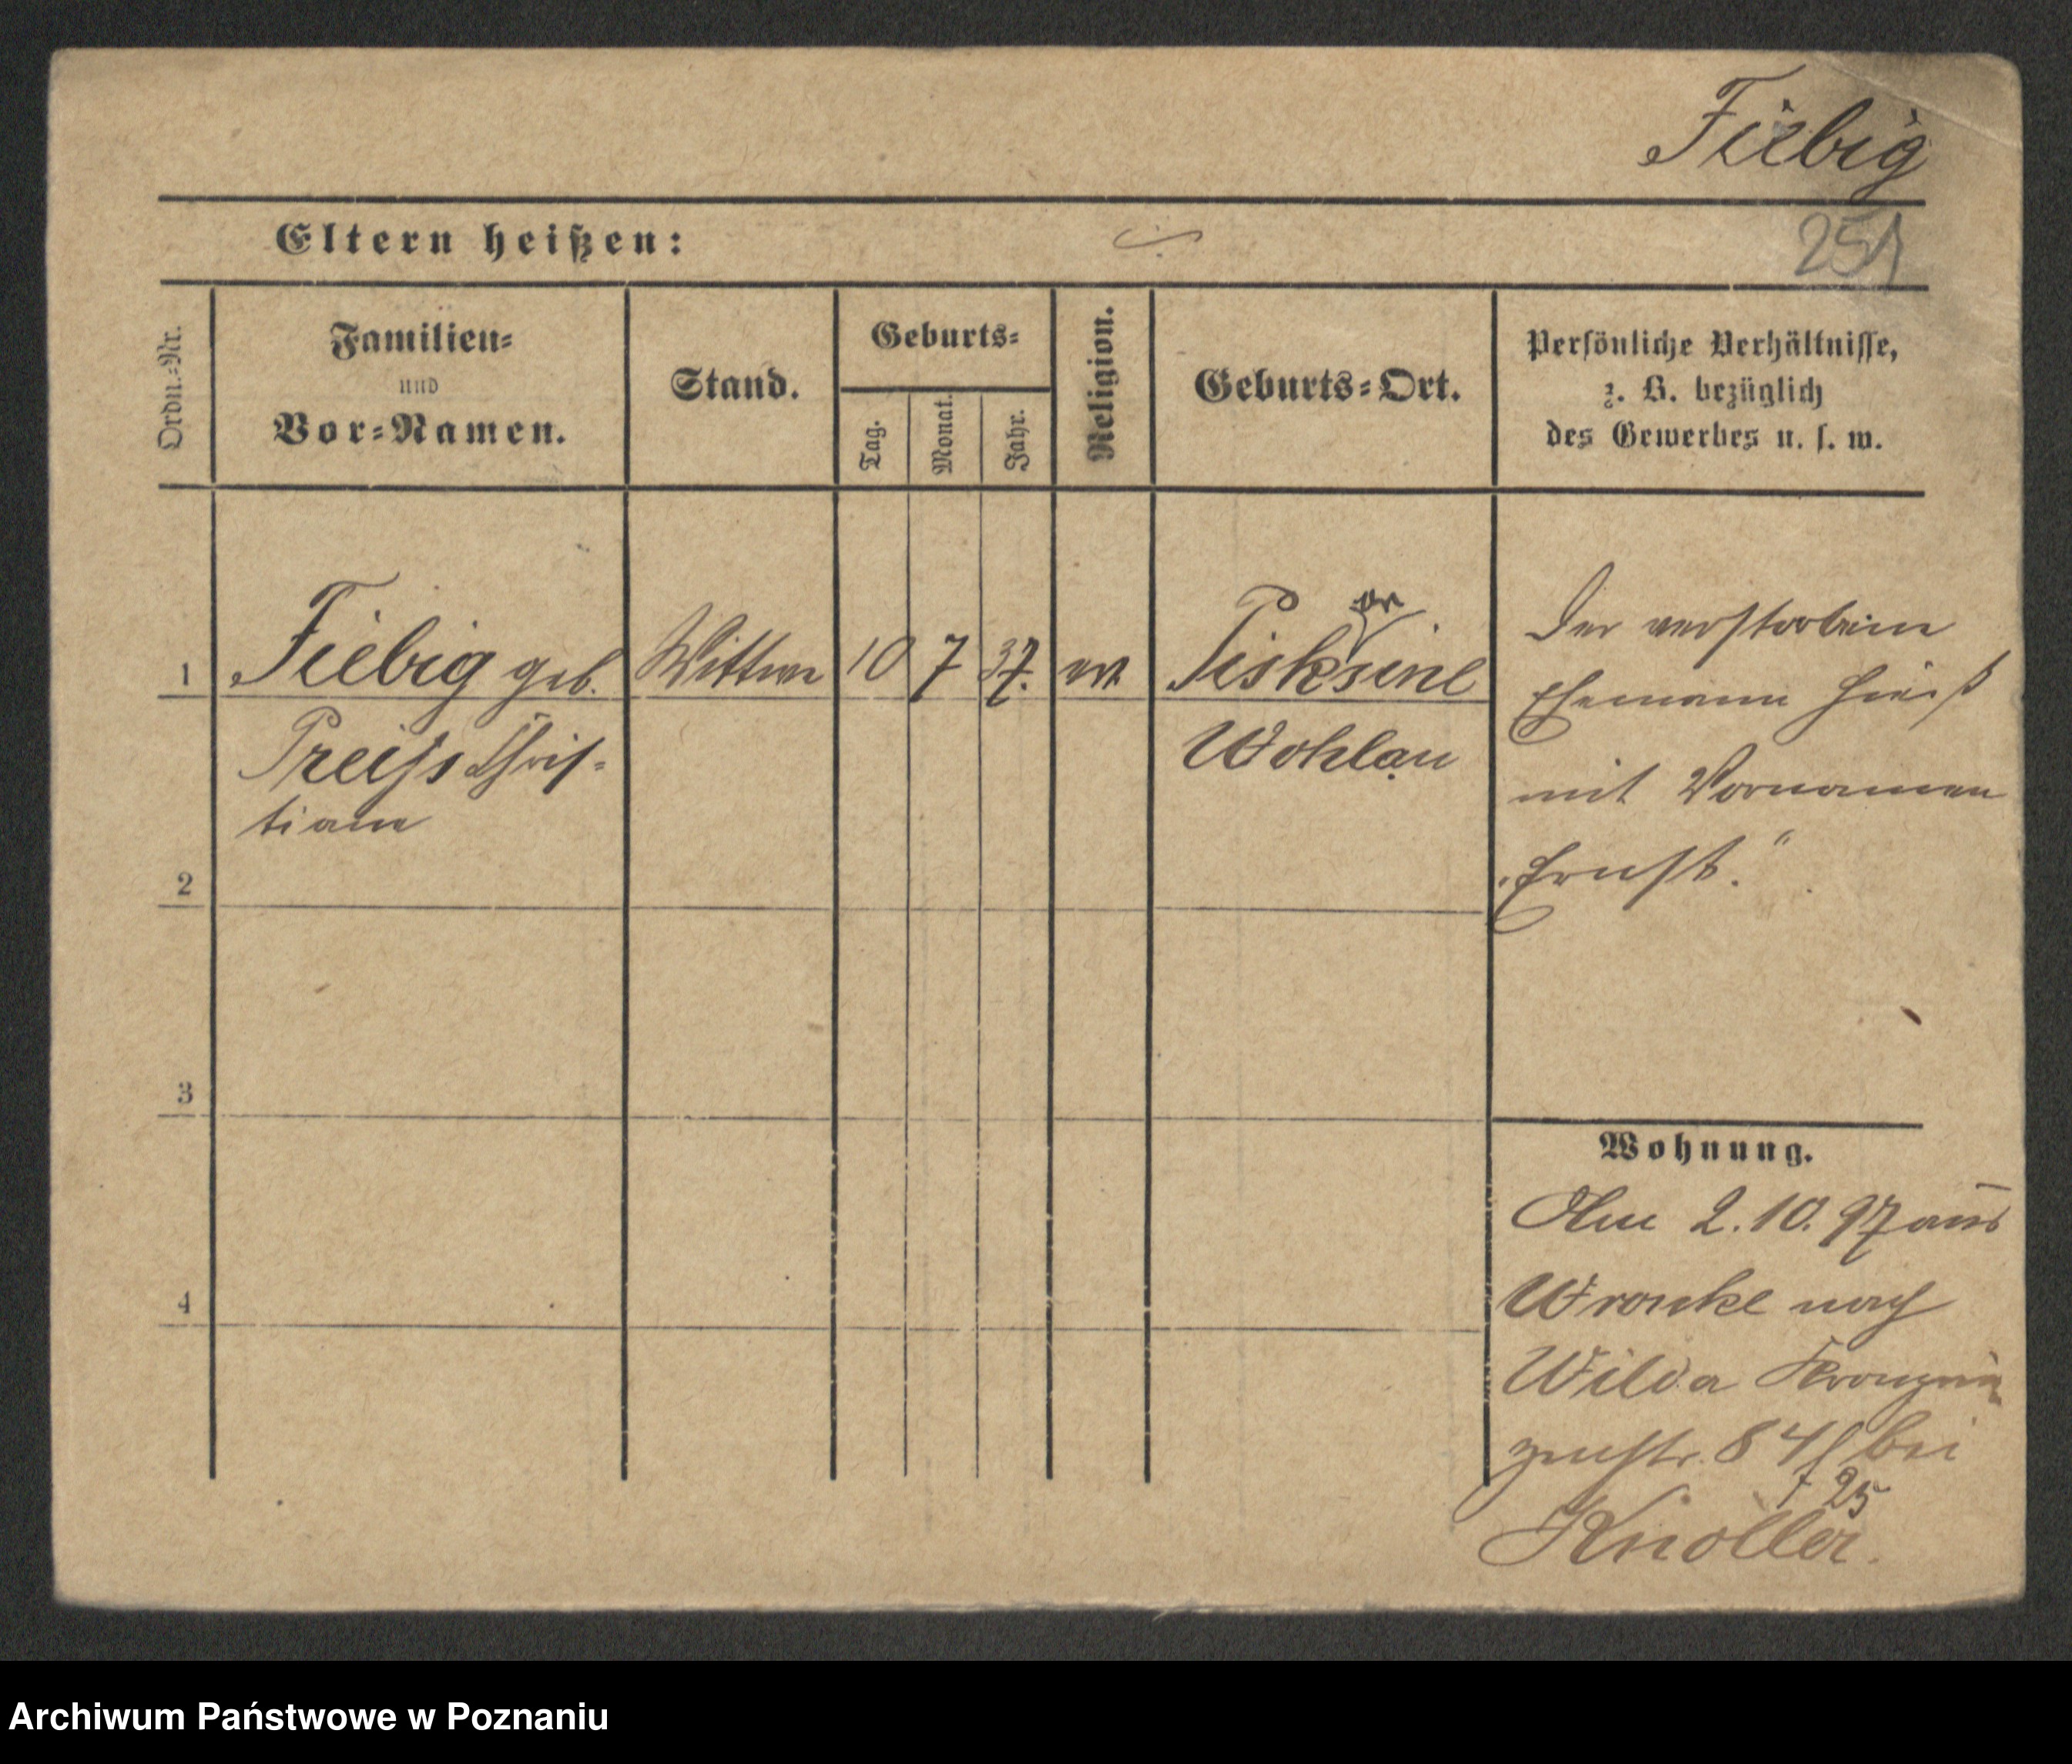 Fiebig
251
Eltern heißen:
Ordn.-Nr.
Familien-
und
Vor-Namen.
Stand.
Geburts-
Tag.
Monat.
Jahr.
Religion.
Geburts-Ort.
Persönliche Verhältnisse,
z. B. bezüglich
des Gewerbes u. s. w.
1
Fiebig geb.
Preiss Chris-
tiane
Wittwe
10
7
37.
ev.
Wohlau
Der verstorbene
Ehemann hieß
mit Vornamen
"Ernst."
2
3
4
Wohnung.
Am 2.10.97 aus
Wronke nach
Wilda Kronprin
zenstr. 84 bei
Knoller.
Archiwum Państwowe w Poznaniu